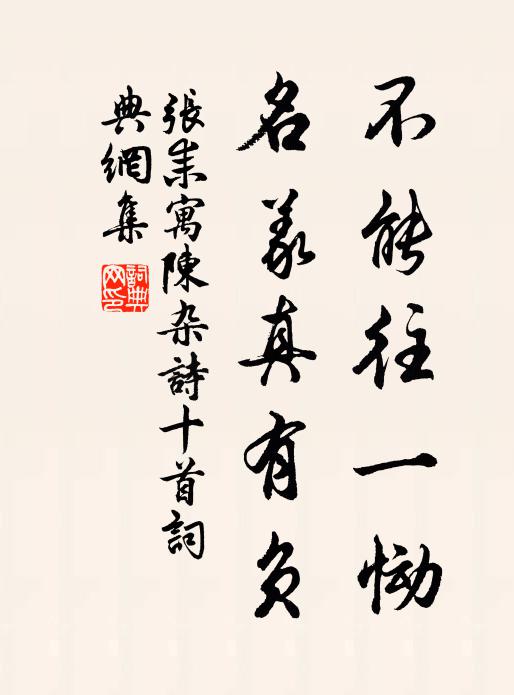 不能往一恸
名义真有负
張耒寓陳杂詩十首詞
典網集
詞典网印